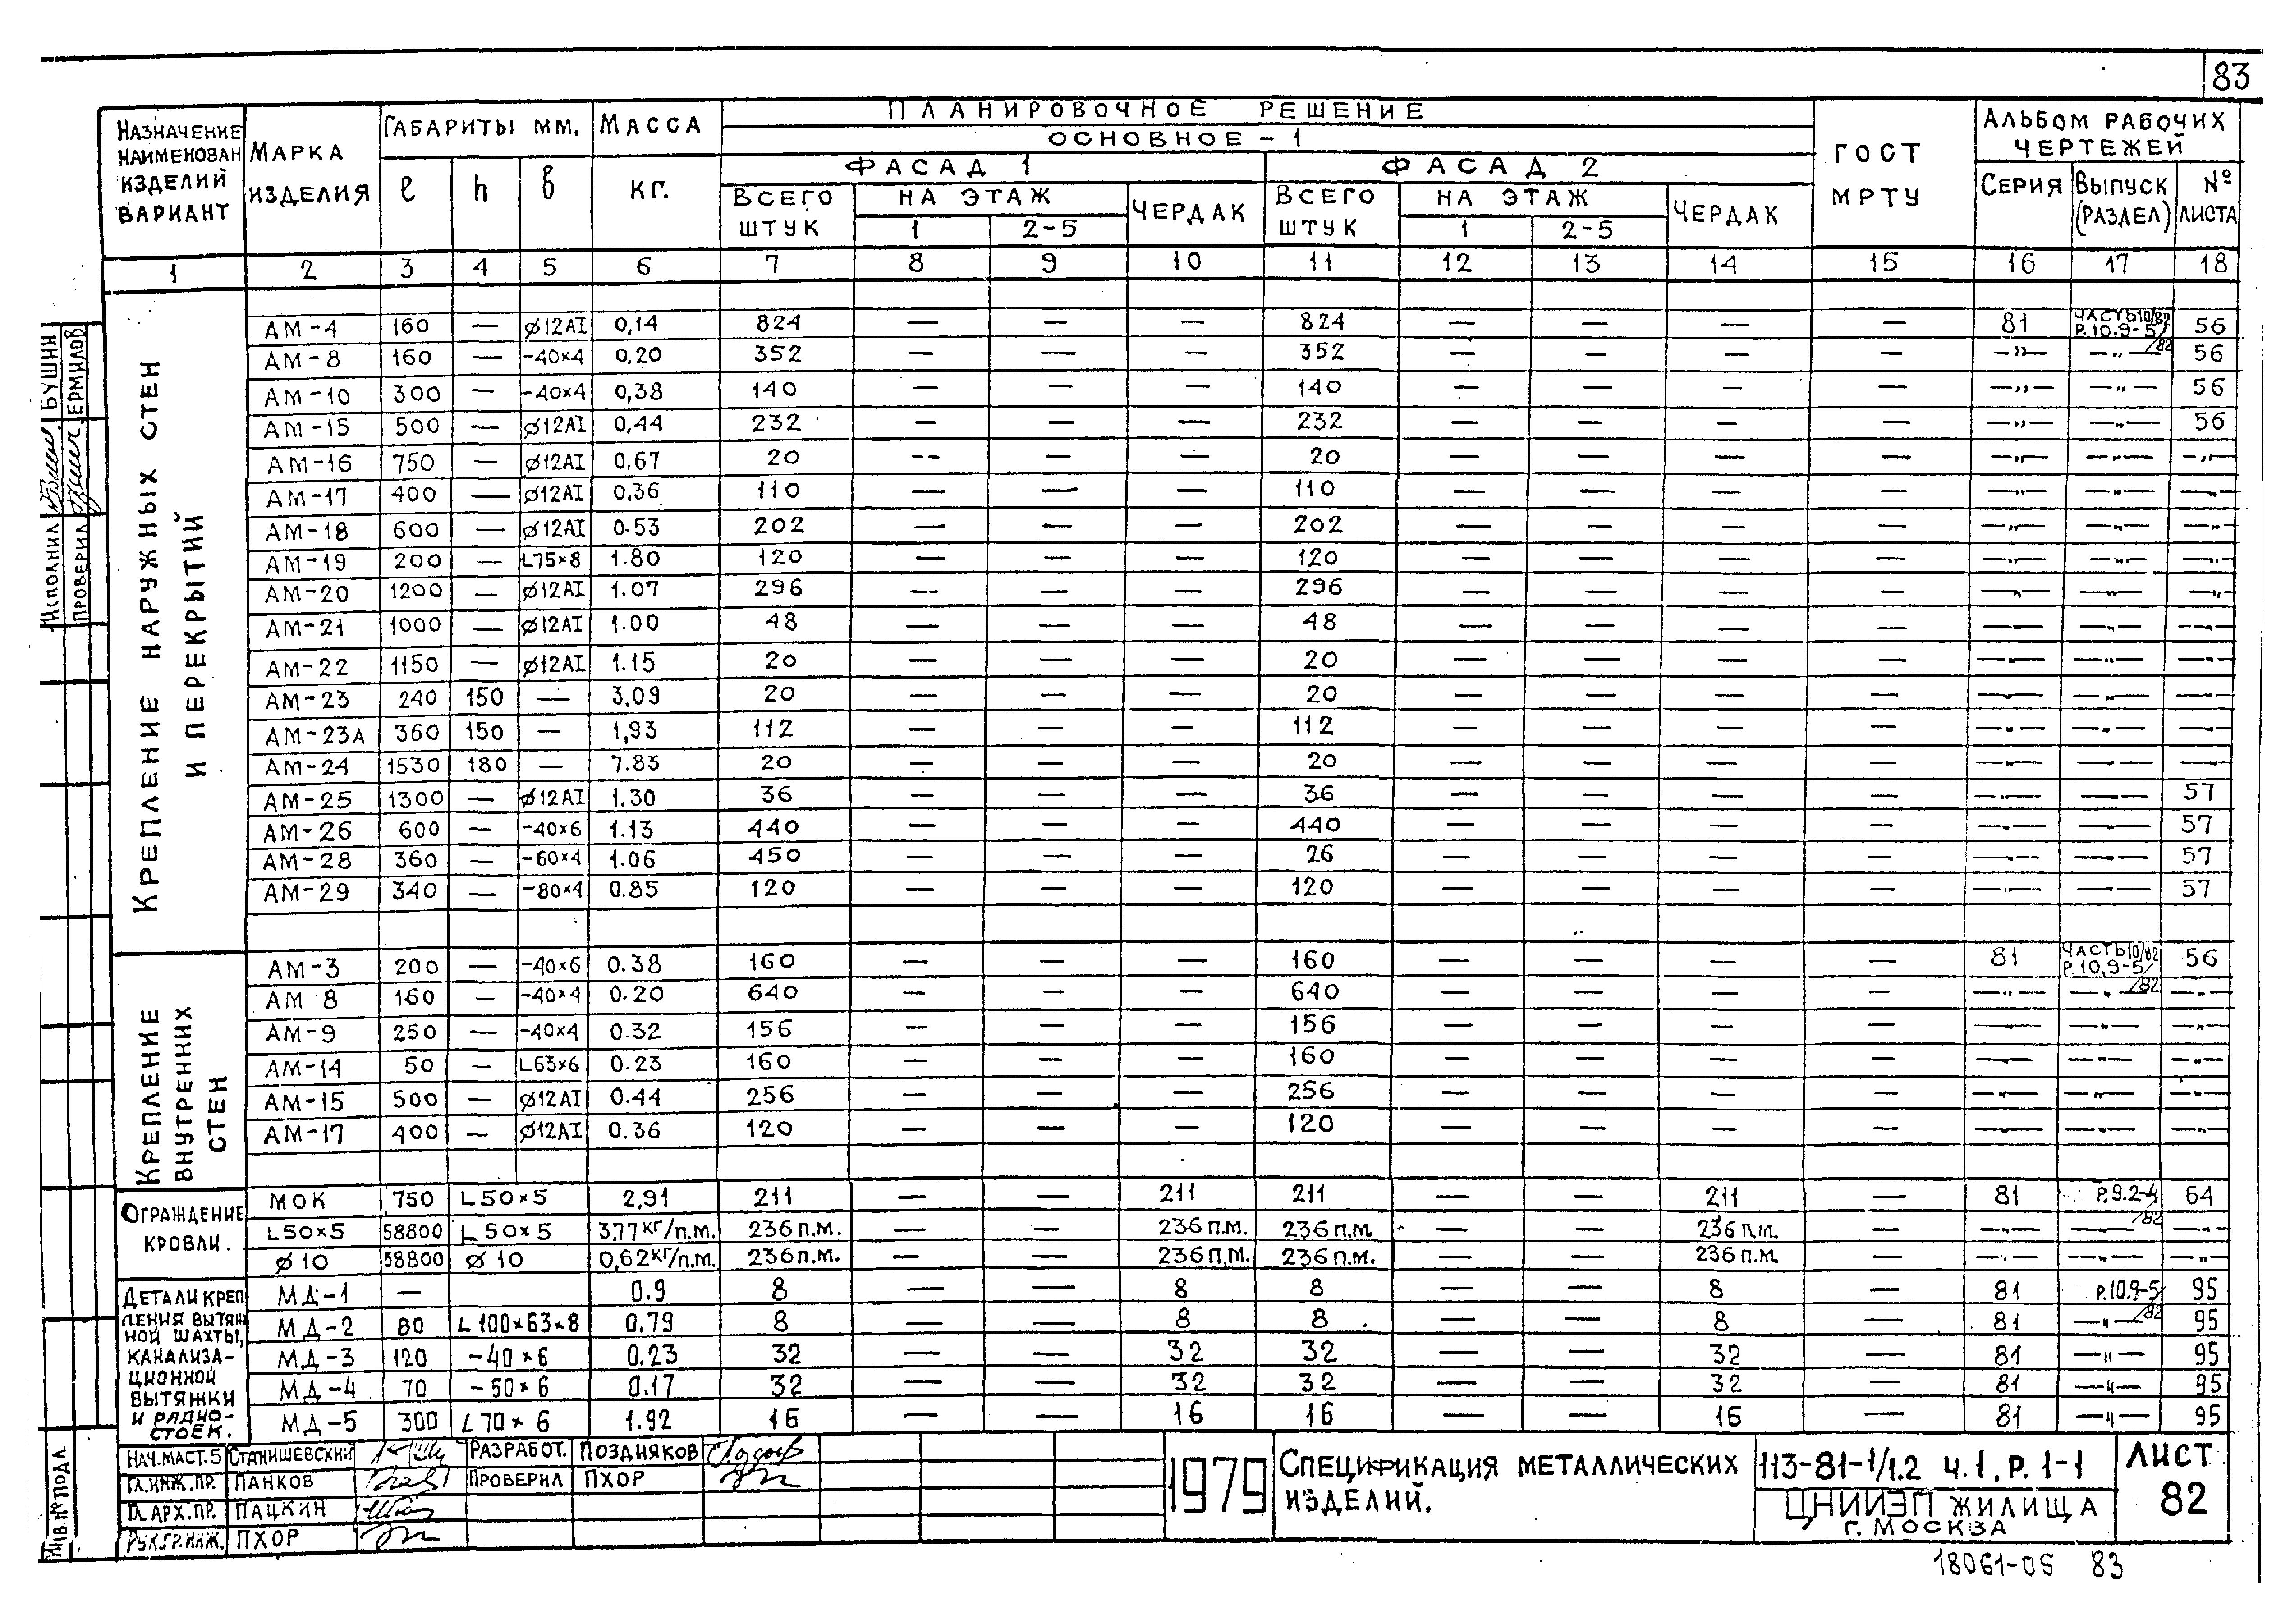 83
НАЗНАЧЕНИЕ НАИМЕНОВАН ИЗДЕЛИЙ ВАРИАНТ
МАРКА ИЗДЕЛИЯ
ГАБАРИТЫ ММ.
ℓ h в
МАССА КГ.
ПЛАНИРОВОЧНОЕ РЕШЕНИЕ
ОСНОВНОЕ – 1
ФАСАД 1 ФАСАД 2
ВСЕГО ШТУК НА ЭТАЖ 1 2-5 ЧЕРДАК
ВСЕГО ШТУК НА ЭТАЖ 1 2-5 ЧЕРДАК
ГОСТ МРТУ
АЛЬБОМ РАБОЧИХ ЧЕРТЕЖЕЙ
СЕРИЯ ВЫПУСК (РАЗДЕЛ) № ЛИСТА
1 2 3 4 5 6 7 8 9 10 11 12 13 14 15 16 17 18
КРЕПЛЕНИЕ НАРУЖНЫХ СТЕН И ПЕРЕКРЫТИЙ
АМ-4 160 — ⌀12АI 0,14 824 — — — 824 — — — — 81 ЧАСТЬ 10/82 Р.10.9-5/82 56
АМ-8 160 — -40×4 0.20 352 — — — 352 — — — — —〃— —〃— 56
АМ-10 300 — -40×4 0,38 140 — — — 140 — — — — —〃— —〃— 56
АМ-15 500 — ⌀12АI 0,44 232 — — — 232 — — — — —〃— —〃— 56
АМ-16 750 — ⌀12АI 0,67 20 — — — 20 — — — — —〃— —〃— —〃—
АМ-17 400 — ⌀12АI 0,36 110 — — — 110 — — — — —〃— —〃— —〃—
АМ-18 600 — ⌀12АI 0.53 202 — — — 202 — — — — —〃— —〃— —〃—
АМ-19 200 — L75×8 1.80 120 — — — 120 — — — — —〃— —〃— —〃—
АМ-20 1200 — ⌀12АI 1.07 296 — — — 296 — — — — —〃— —〃— —〃—
АМ-21 1000 — ⌀12АI 1.00 48 — — — 48 — — — — —〃— —〃— —〃—
АМ-22 1150 — ⌀12АI 1.15 20 — — — 20 — — — — —〃— —〃— —〃—
АМ-23 240 150 — 3,09 20 — — — 20 — — — — —〃— —〃— —〃—
АМ-23А 360 150 — 1,93 112 — — — 112 — — — — —〃— —〃— —〃—
АМ-24 1530 180 — 7.83 20 — — — 20 — — — — —〃— —〃— —〃—
АМ-25 1300 — ⌀12АI 1.30 36 — — — 36 — — — — —〃— —〃— 57
АМ-26 600 — -40×6 1.13 440 — — — 440 — — — — —〃— —〃— 57
АМ-28 360 — -60×4 1.06 450 — — — 26 — — — — —〃— —〃— 57
АМ-29 340 — -80×4 0.85 120 — — — 120 — — — — —〃— —〃— 57
КРЕПЛЕНИЕ ВНУТРЕННИХ СТЕН
АМ-3 200 — -40×6 0.38 160 — — — 160 — — — — 81 ЧАСТЬ 10/82 Р.10,9-5/82 56
АМ 8 160 — -40×4 0.20 640 — — — 640 — — — — —〃— —〃— —〃—
АМ-9 250 — -40×4 0.32 156 — — — 156 — — — — —〃— —〃— —〃—
АМ-14 50 — L63×6 0.23 160 — — — 160 — — — — —〃— —〃— —〃—
АМ-15 500 — ⌀12АI 0.44 256 — — — 256 — — — — —〃— —〃— —〃—
АМ-17 400 — ⌀12АI 0.36 120 — — — 120 — — — — —〃— —〃— —〃—
ОГРАЖДЕНИЕ КРОВЛИ.
МОК 750 L50×5 2,91 211 — — 211 211 — — 211 — 81 Р.9.2-4/82 64
L50×5 58800 L50×5 3,77кг/п.м. 236п.м. — — 236п.м. 236п.м. — — 236п.м. — —〃— —〃— —〃—
⌀10 58800 ⌀10 0,62кг/п.м. 236п.м. — — 236п,м. 236п.м. — — 236п.м — —〃— —〃— —〃—
ДЕТАЛИ КРЕПЛЕНИЯ ВЫТЯЖНОЙ ШАХТЫ, КАНАЛИЗА-ЦИОННОЙ ВЫТЯЖКИ И РАДИО-СТОЕК.
МД-1 — 0.9 8 — — 8 8 — — 8 — 81 Р.10.9-5/82 95
МД-2 80 L100×63×8 0.79 8 — — 8 8 — — 8 — 81 —〃— 95
МД-3 120 -40×6 0.23 32 — — 32 32 — — 32 — 81 —〃— 95
МД-4 70 -50×6 0.17 32 — — 32 32 — — 32 — 81 —〃— 95
МД-5 300 L70×6 1.92 16 — — 16 16 — — 16 — 81 —〃— 95
ИСПОЛНИЛ БУШИН
ПРОВЕРИЛ ЕРМИЛОВ
ИНВ.№ ПОДЛ
НАЧ.МАСТ.5 СТАНИШЕВСКИЙ РАЗРАБОТ. ПОЗДНЯКОВ
ГЛ.ИНЖ.ПР. ПАНКОВ ПРОВЕРИЛ ПХОР
ГЛ.АРХ.ПР. ПАЦКИН
РУК.ГР.ИНЖ. ПХОР
1979
СПЕЦИФИКАЦИЯ МЕТАЛЛИЧЕСКИХ ИЗДЕЛИЙ.
113-81-1/1.2 Ч.1, Р. 1-1
ЦНИИЭП ЖИЛИЩА
Г. МОСКВА
ЛИСТ 82
18061-05 83